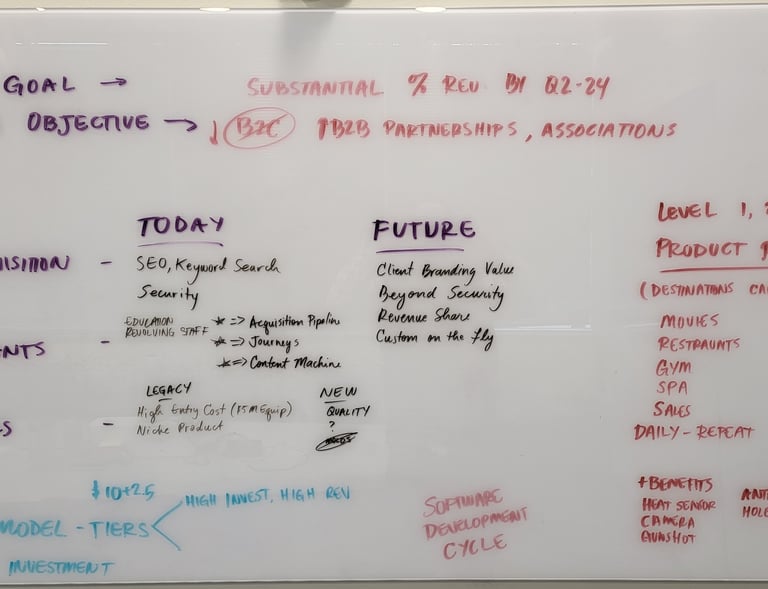 GOAL → SUBSTANTIAL % REV BY Q2-24
OBJECTIVE → ↓ B2C ↑B2B PARTNERSHIPS, ASSOCIATIONS
TODAY
FUTURE
LEVEL 1,
PRODUCT
ISITION - SEO, Keyword Search
Security
Client Branding Value
Beyond Security
Revenue Share
Custom on the fly
(DESTINATIONS CA
NTS -
EDUCATION
REVOLVING STAFF
* => Acquisition Pipeline
* => Journeys
* => Content Machine
MOVIES
RESTRAUNTS
GYM
SPA
SALES
DAILY - REPEAT
S -
LEGACY
High Entry Cost (Equip)
Niche Product
NEW
QUALITY
?
$10+2.5
MODEL - TIERS < HIGH INVEST, HIGH REV
INVESTMENT
SOFTWARE
DEVELOPMENT
CYCLE
+BENEFITS
HEAT SENSOR
CAMERA
GUNSHOT
ANT
HOLE